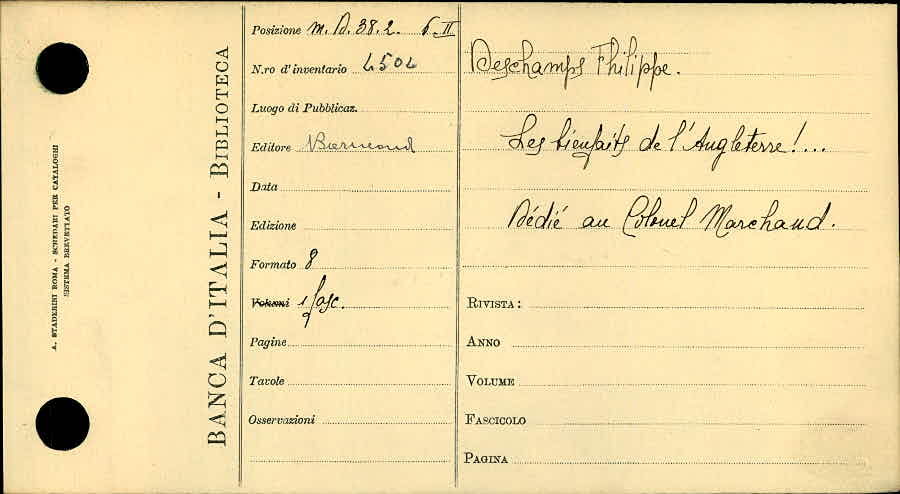 A. STADERINI ROMA - SCHEDARI PER CATALOGHI
SISTEMA BREVETTATO
BANCA D'ITALIA - BIBLIOTECA
Posizione M. D. 38. 2. 6 II
N.ro d'inventario 4504
Luogo di Pubblicaz.
Editore
Data
Edizione
Formato 8
Volumi 1 fasc.
Pagine
Tavole
Osservazioni
Deschamps Philippe.
Les bienfaits de l'Angleterre!...
Dédié au Colonel Marchand.
RIVISTA:
ANNO
VOLUME
FASCICOLO
PAGINA